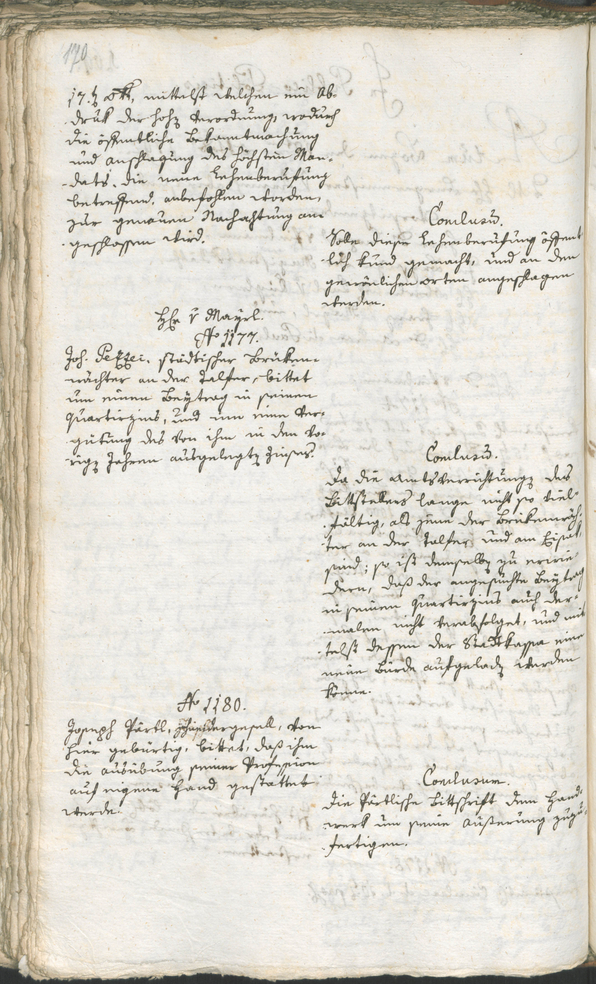 179
17. 8br, mittelst welchen ein Ab-
druk der hohen Verordnung, wodurch
die öffentliche Bekanntmachung
und anschlagung des höchsten Man-
dats, die neue Lehenberufung
betreffend, anbefohlen worden,
zur genauen Nachachtung an-
geschlossen wird.
Conclusum.
Solle diese Lehenberufung öffent
lich kund gemacht, und an den
gewönlichen orten angeschlagen
werden.
Hr v Mayrl.
No 1177.
Joh. Pezzei, städtischer Brüken-
wächter an der Talfer, bittet
um einen Beytrag in seinen
Quartierzins, und um eine Ver-
gütung des von ihm in den vo-
rigen Jahren ausgelegten Zinses.
Conclusum.
Da die amtsverrichtungen des
Bittstellers lange nicht so viel-
fältig, als jene der Brükenwäch-
ter an der Talfer und am Eisak
sind; so ist demselben zu erwie-
dern, daß der angesuchte Beytrag
in seinen Quartierzins auch der-
malen nicht verabfolget, und mit
telst dessen der Stadtkassa eine
neue Bürde aufgeladen werden
könne.
No 1180.
Joseph Pärtl, gesell, von
hier gebürtig, bittet, daß ihm
die ausübung seiner Profession
auf eigene Hand gestattet
werde.
Conclusum.
Die Pärtlische Bittschrift dem Hand-
werk um seine äußerung zuzu-
fertigen.